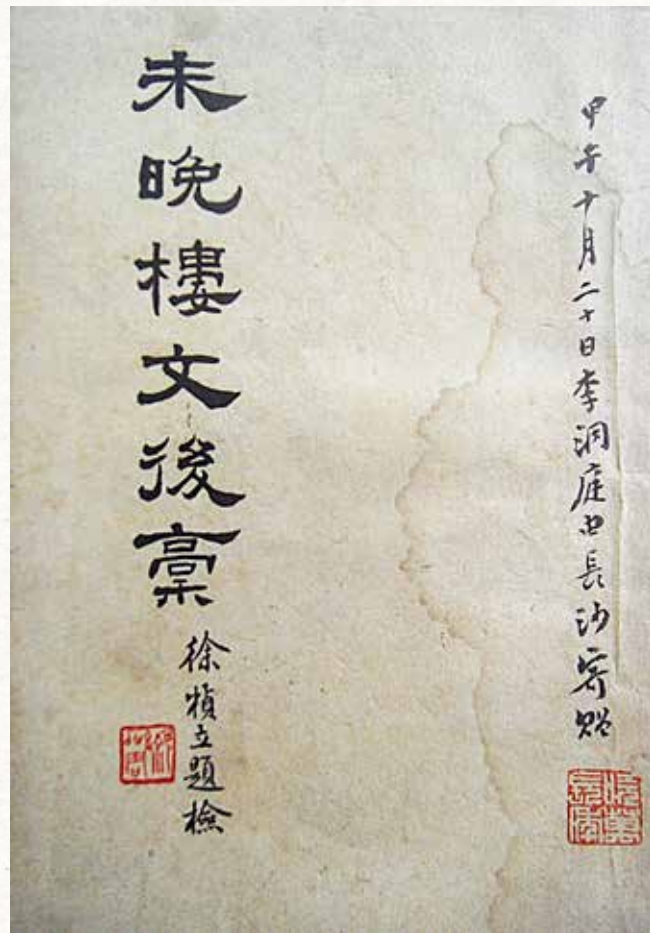 甲午十月二十日李洞庭由長沙寄貽
未晚樓文後稾
徐楨立題檢